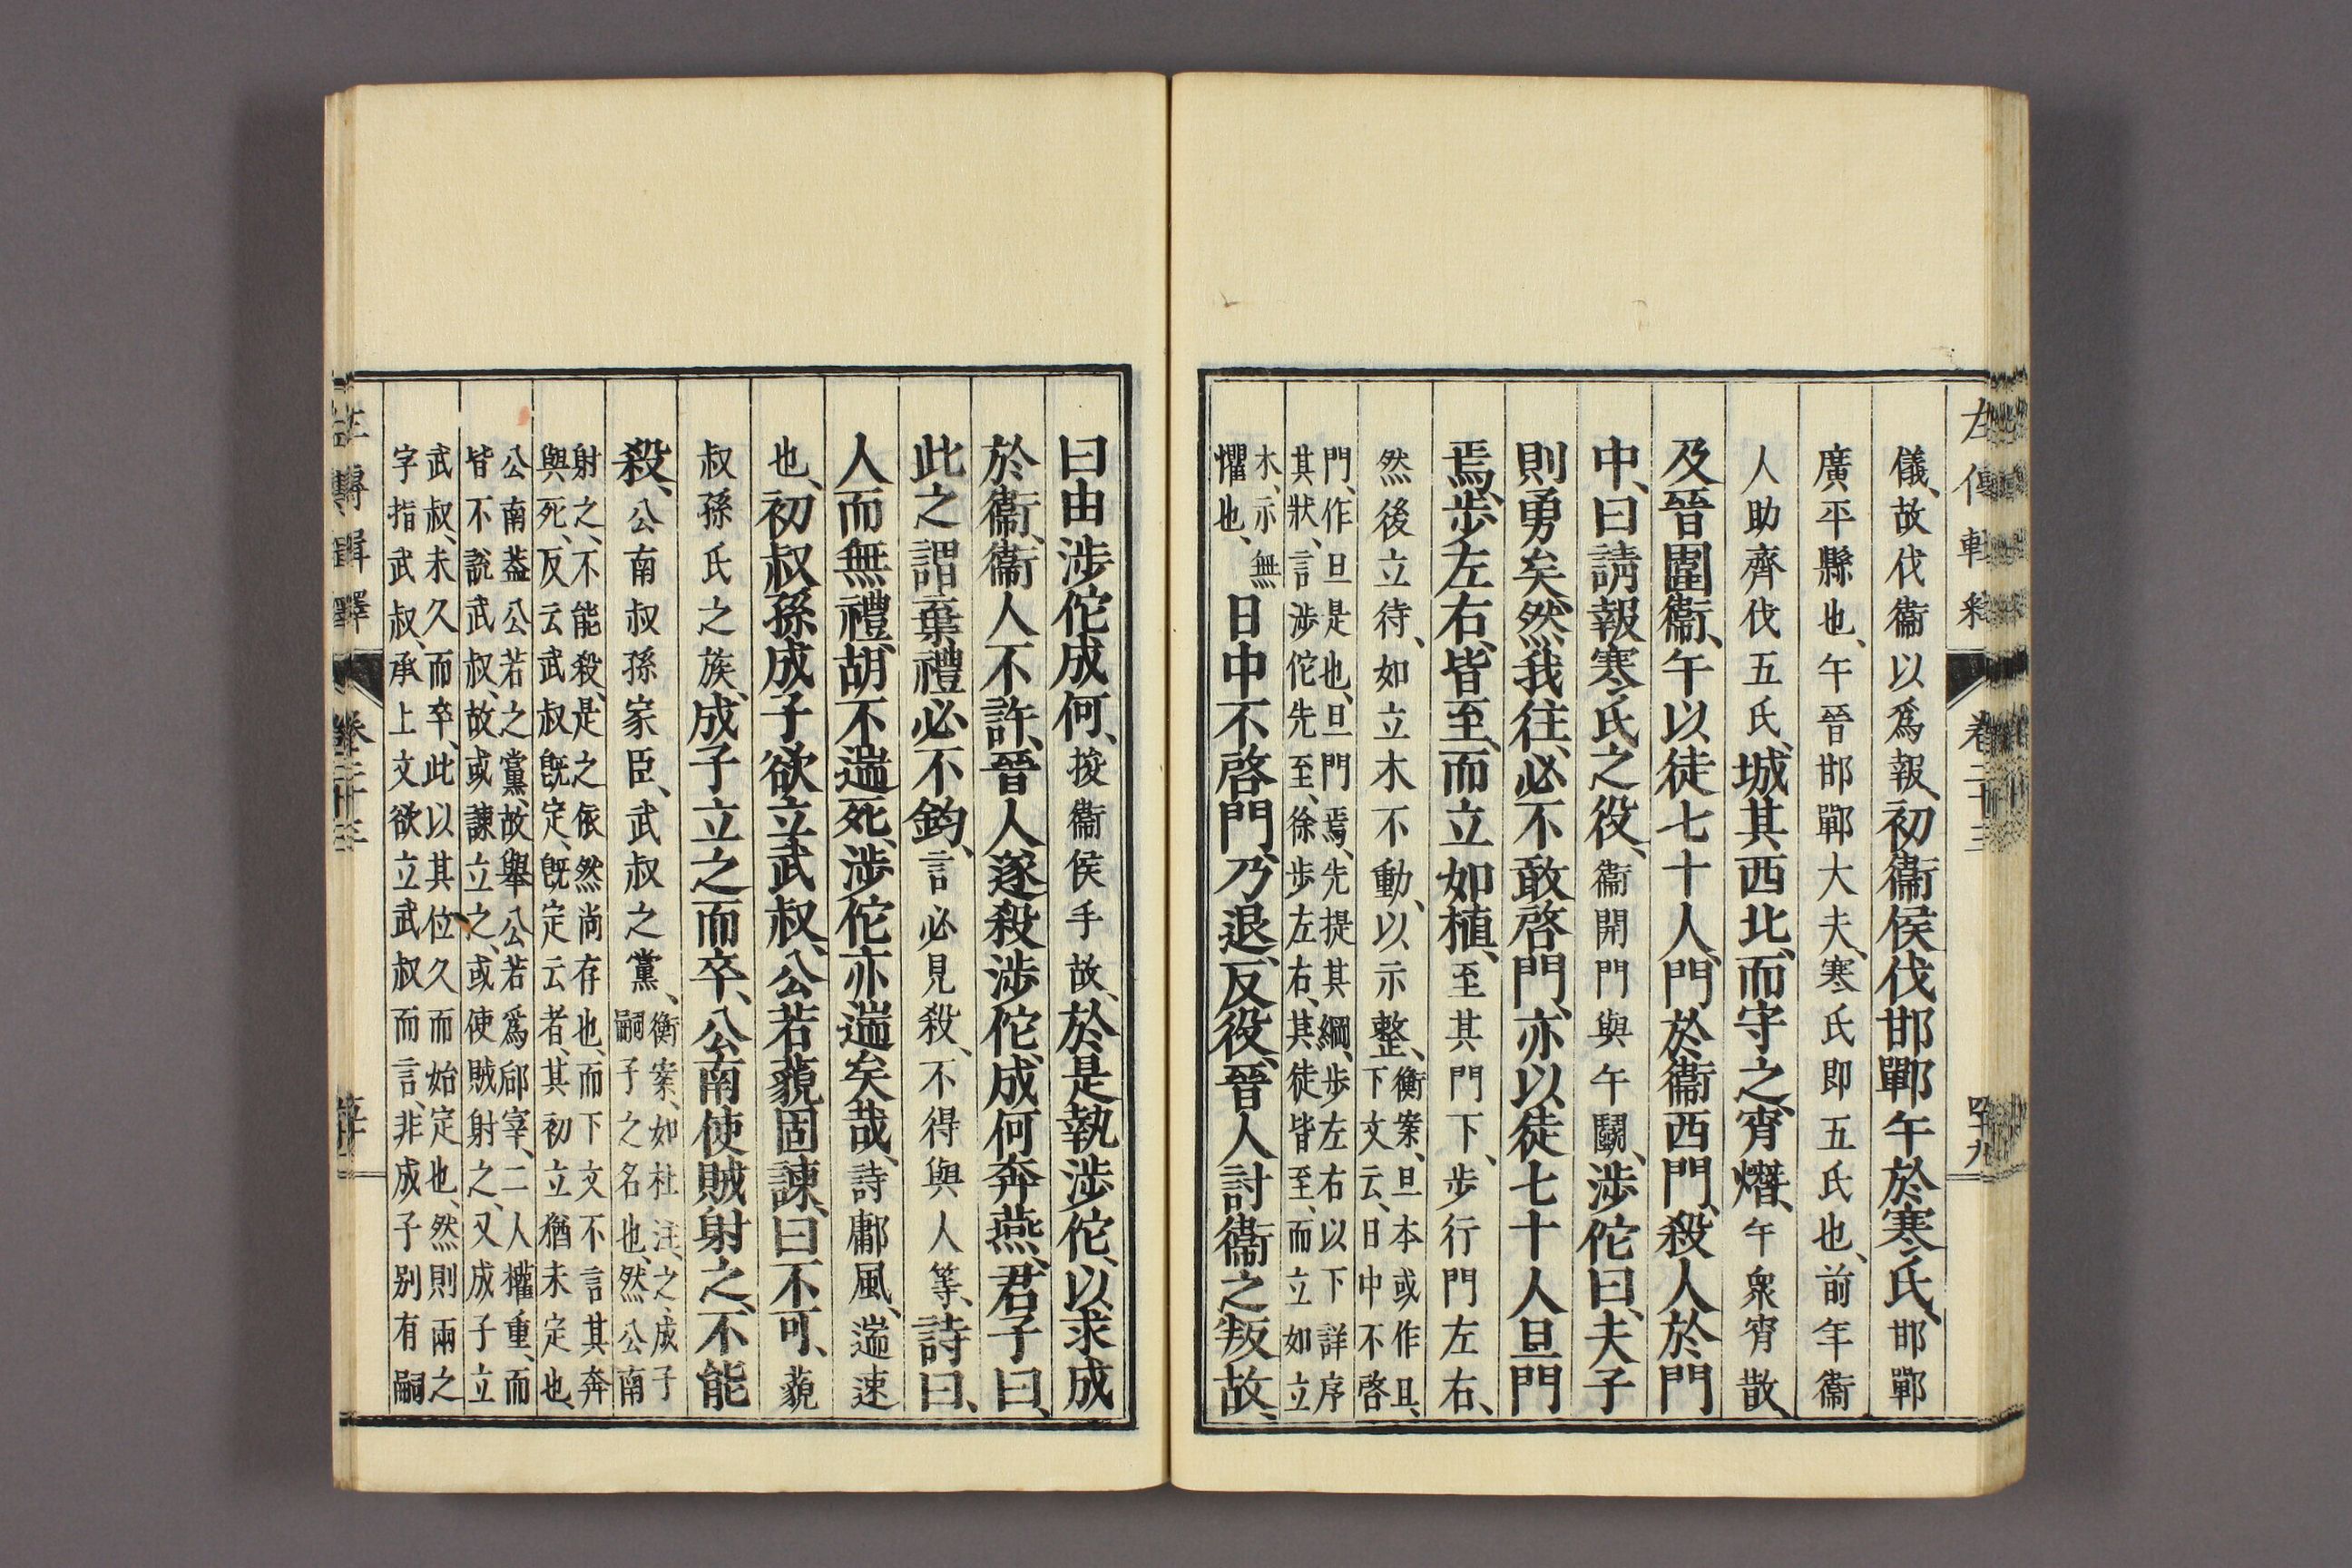 儀、故伐衞以爲報、初衞侯伐邯鄲午於寒氏、邯鄲
廣平縣也、午晉邯鄲大夫、寒氏即五氏也、前年衞
人助齊伐五氏、城其西北、而守之、宵熸、午衆宵散、
及晉圍衞、午以徒七十人、門於衞西門、殺人於門
中、曰請報寒氏之役、衞開門與午鬭、涉佗曰、夫子
則勇矣、然我往、必不敢啓門、亦以徒七十人旦門
焉、步左右、皆至、而立如植、至其門下、步行門左右、
然後立待、如立木不動、以示整、衡案、旦本或作且、
下文云、日中不啓
門、作旦是也、旦門焉、先提其綱、步左右以下詳序
其狀、言涉佗先至、徐步左右、其徒皆至、而立如立
木、示無
懼也、
日中不啓門、乃退、反役、晉人討衞之叛故、
曰由涉佗成何、捘衞侯手故、於是執涉佗、以求成
於衞、衞人不許、晉人遂殺涉佗、成何奔燕、君子曰、
此之謂棄禮必不鈞、言必見殺、不得與人等、詩曰、
人而無禮、胡不遄死、涉佗亦遄矣哉、詩鄘風、遄速
也、初叔孫成子欲立武叔、公若藐固諫、曰不可、藐
叔孫氏之族、成子立之而卒、公南使賊射之、不能
殺、公南叔孫家臣、武叔之黨、衡案、如杜注、之、成子
嗣子之名也、然公南
射之、不能殺、是之依然尚存也、而下文不言其奔
與死、反云武叔既定、既定云者、其初立猶未定也、
公南葢公若之黨、故舉公若爲郈宰、二人權重、而
皆不說武叔、故或諫立之、或使賊射之、又成子立
武叔、未久而卒、此以其位久而始定也、然則兩之
字指武叔、承上文欲立武叔而言、非成子别有嗣
左傳輯釋
卷二十三
四十九